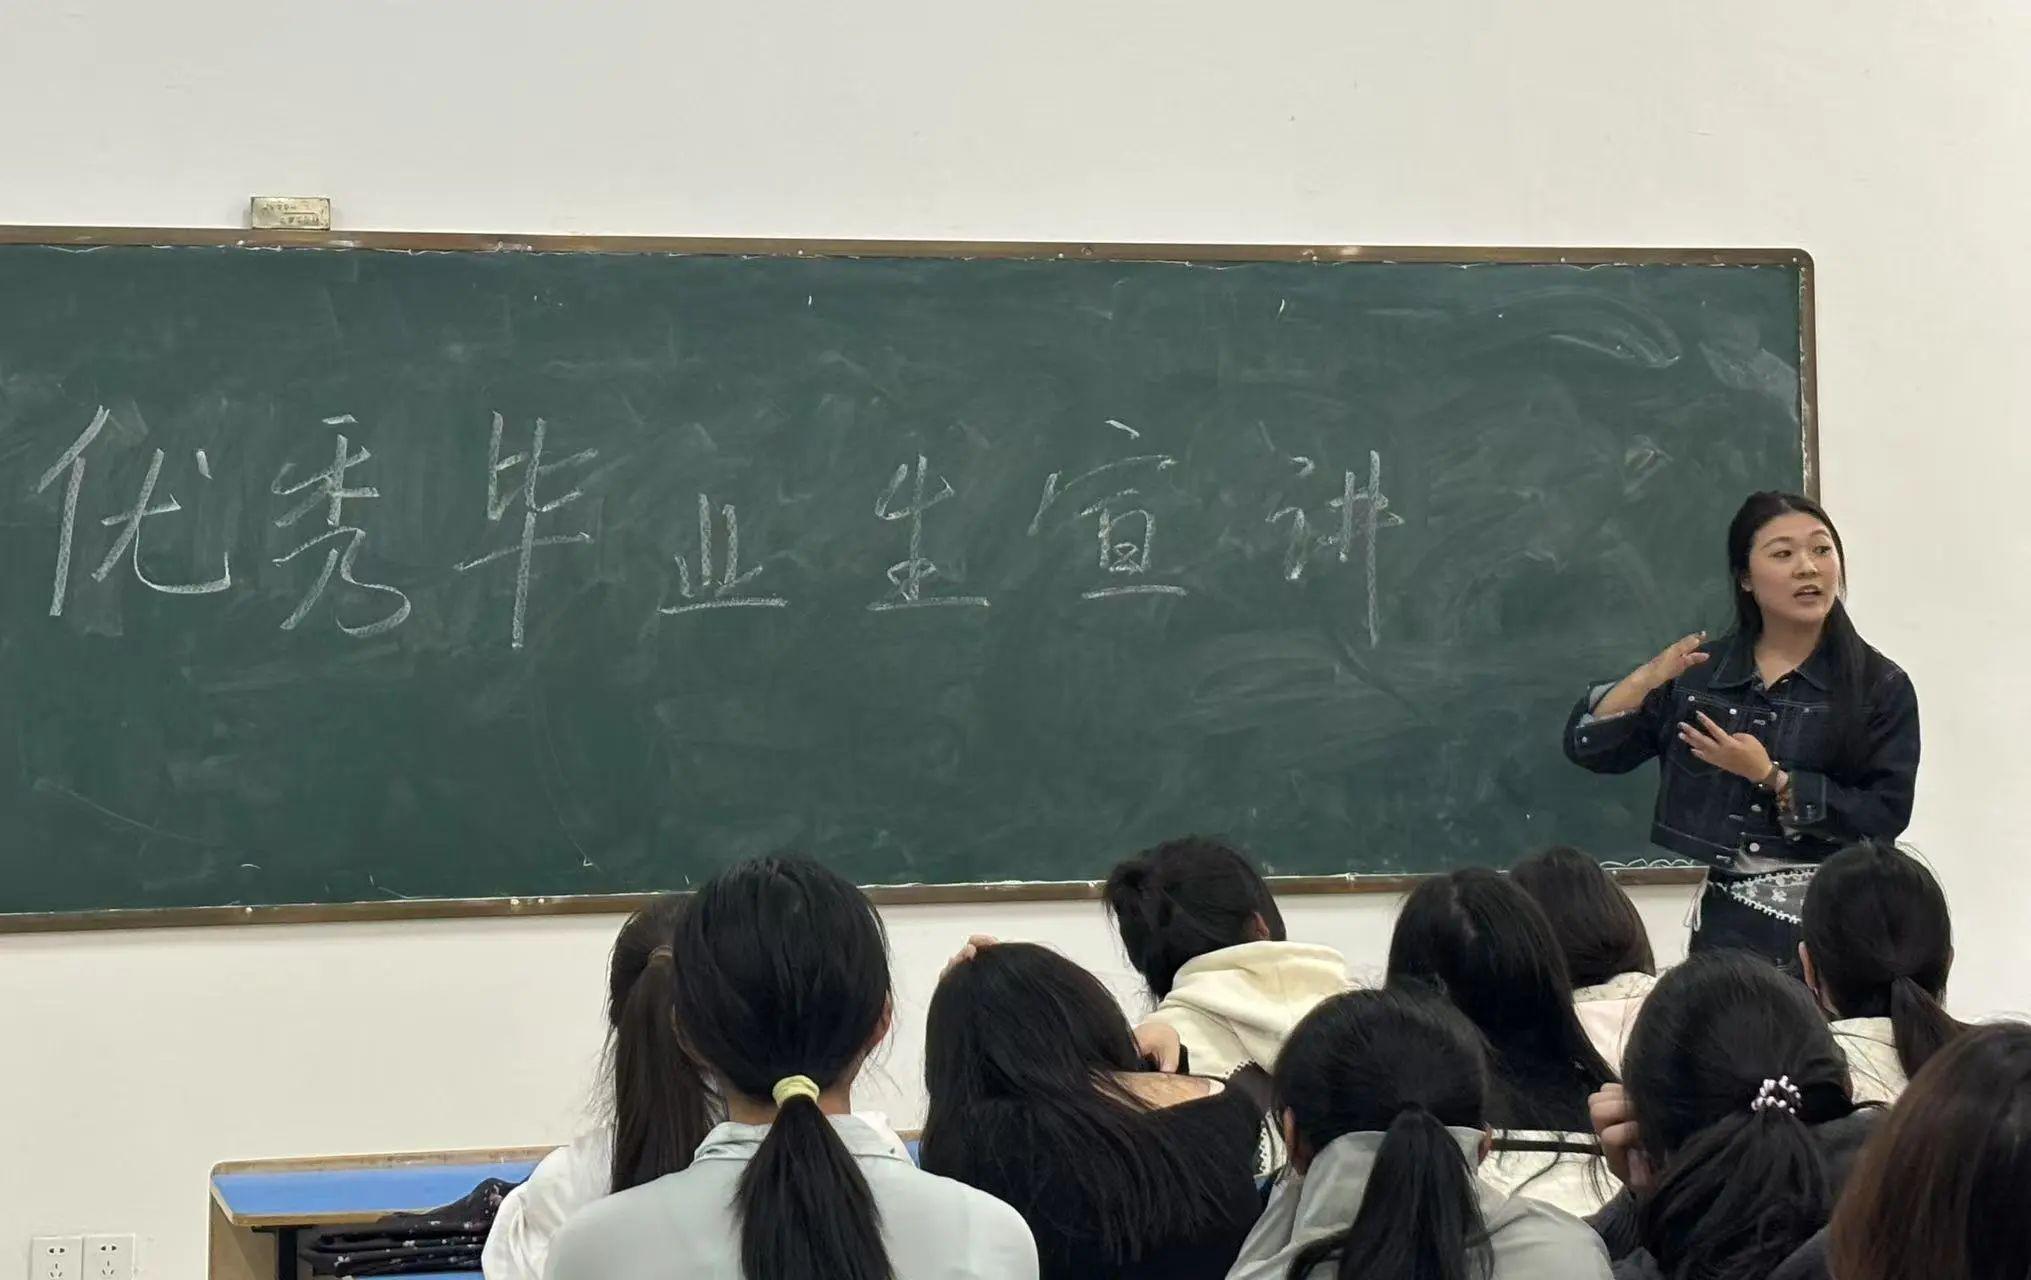 优秀毕业生宣讲